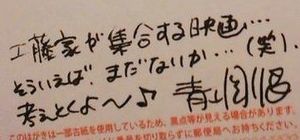 工藤家が集合する映画…
そういえば、まだないか…(笑)、
考えとくよ〜♪ 青山剛昌
このはがきは一部古紙を使用しているため、黒点等が見える場合があります。
番号を切り取らずに郵便局へお持ちください。